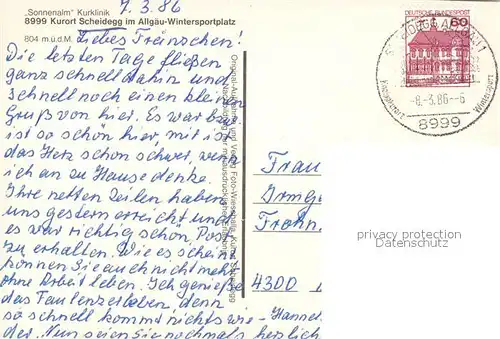 „Sonnenalm" Kurklinik
8999 Kurort Scheidegg im Allgäu-Wintersportplatz
804 m ü.d.M.
7.3.86
Liebes Freinschen!
Die letzten Tage fließen
ganz schnell dahin und
schnell noch einen kleinen
Gruß von hier. Es war
ist so schön hier mir ist
das Herz schon schwer, wenn
ich an zu Hause denke.
Ihre netten Zeilen haben
uns gestern erreicht und
es war richtig schön, Post
zu erhalten. Wie es schein
können Sie auch nicht mehr
ohne Arbeit leben. Ich genieße
das Faulenzerleben denn
so schnell kommt nichts wie-
der. Nun seien Sie nochmals herzlich
Hanne
Original-Aufnahme und Verlag Foto
DEUTSCHE BUNDESPOST
60
SCHEIDEGG, ALLGÄU 1
Kneippkurort
Wintersport
-8.-3.86.-6
8999
Frau
Irmga
Frohn
4300
privacy protection
Datenschutz